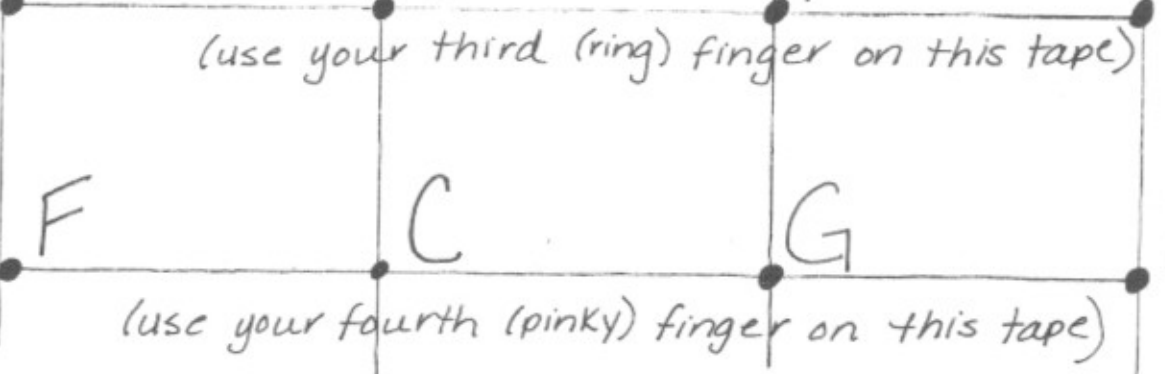 (use your third (ring) finger on this tape)
F C G
(use your fourth (pinky) finger on this tape)